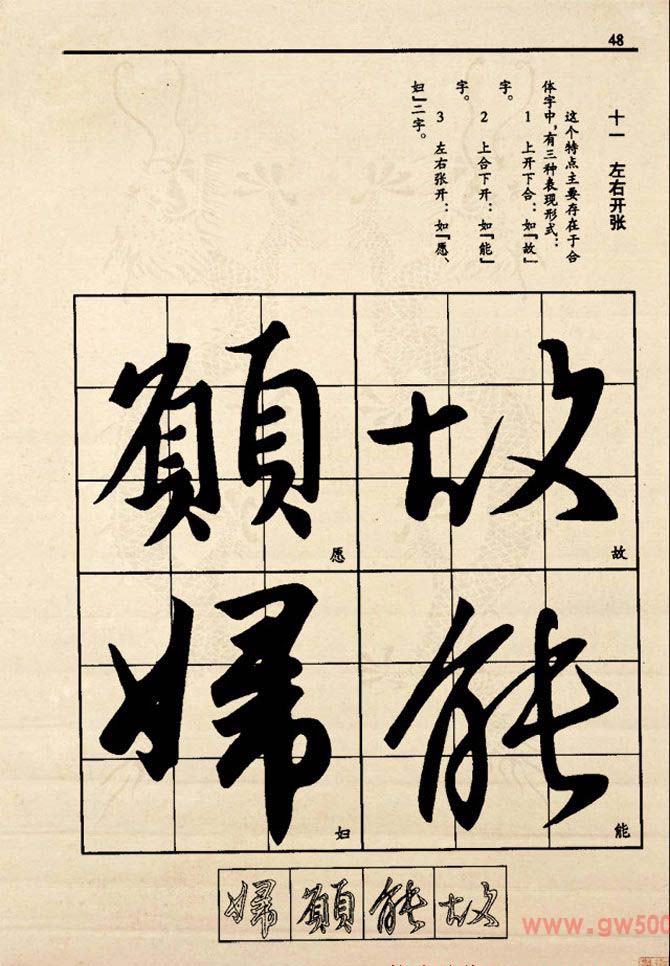 48
十一 左右开张
这个特点主要存在于合
体字中，有三种表现形式：
1 上开下合：如『故』
字。
2 上合下开：如『能』
字。
3 左右张开：如『愿、
妇』二字。
故
故
能
能
願
愿
婦
妇
婦 願 能 故
www.gw500